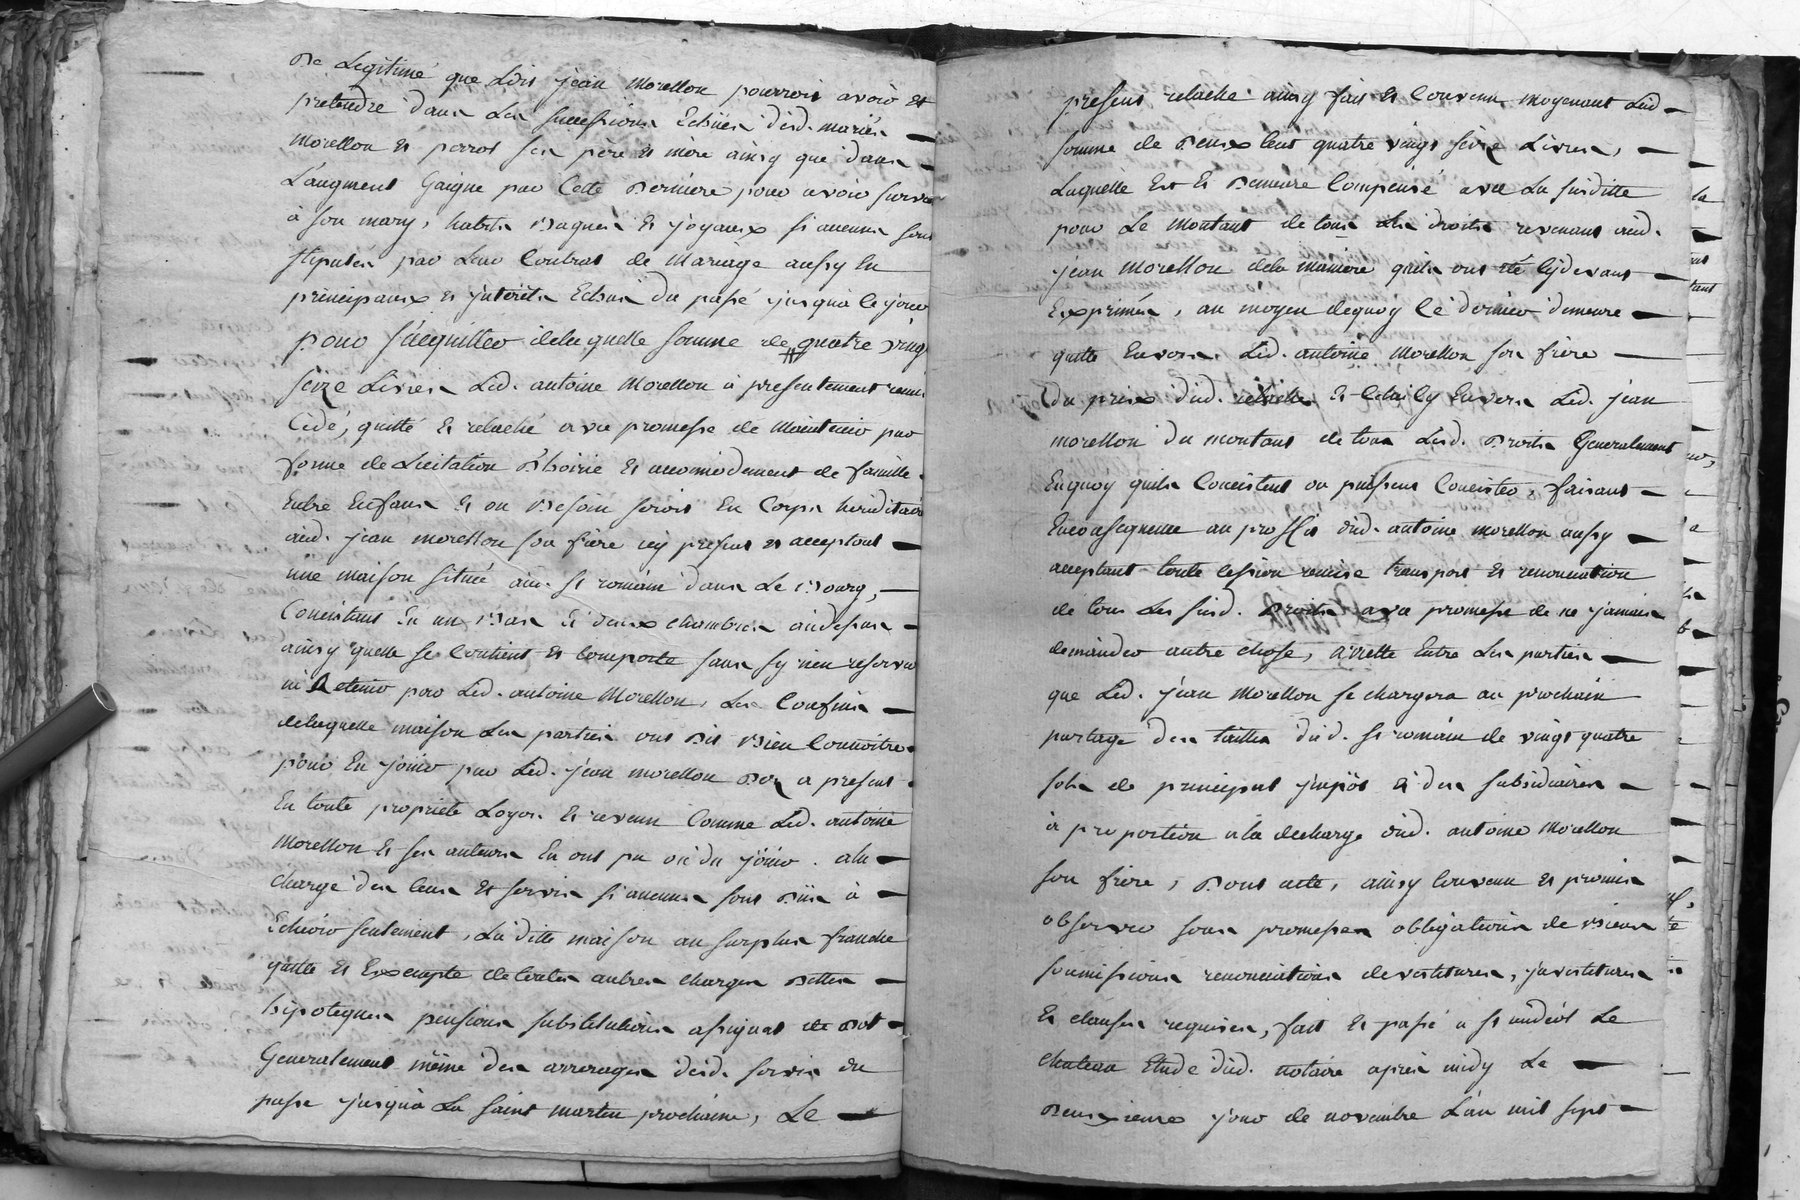 De Legitime que Ledit jean Morellon pourroit avoir et
pretendre dans Les successions Echües desd. mariés
Morellon et perrot ses père et mere ainsy que dans
L'augment Gaigné par Cette Derniere pour avoir survecu
à son mary, habits Bagues et joyaux si aucuns sont
stipulés par Leur Contrat de Mariage aussy En
principaux et jnterêts Echus du passé jusqu'a ce jour
pour s'acquitter delaquelle somme de quatre vingt
seize Livres Led. antoine Morellon à presentement remis
Cédé, quitté et relaché avec promesse de Maintenir par
forme de Licitation D'hoirie et accomodement de famille
Entre Enfans et ou Besoin seroit En Corps hereditaire
aud. jean morellon son frère icy present et acceptant
une maison située aud. st romain dans Le Bourg,
Consistant En un Bas et deux chambres audessus
ainsy quelle se Contient et Comporte sans sy rien reserver
ni Retenir par Led. antoine Morellon, Les Confins
delaquelle maison Les parties ont dit Bien Connoitre
pour En jouir par Led. jean morellon Dez a present
En toute proprieté Loyers et revenus Comme Led. antoine
Morellon et ses auteurs En ont pu ou du joüir. ala
charge des Cens et servis si aucuns sont Düs à
Echeoir seulement, Laditte maison au surplus franche
quitte et Exempte de toutes autres charges Dettes
hipoteques pensions substitutions assignat de Dot
Generalement même des arrerages desd. servis du
passé jusqu'à La saint martin prochaine, Le
present relaché ainsy fait et Convenu moyenant Lad.
somme de Deux Cent quatre vingt seize Livres,
Laquelle Est et Demeure Compensé avec La susditte
pour Le Montant de tous Les droits revenants aud.
jean Morellon dela maniere quils ont été cydevant
Exprimés, au moyen dequoy Ce dernier demeure
quitte Envers Led. antoine Morellon son frère
du prix dud. relaché et Celuicy Envers Led. jean
morellon du montant de tous Lesd. Droits Generalement
Enquoy quils Consistent ou puissent Consister, faisant
Enconsequence au proffit dud. antoine morellon aussy
acceptant toute cession remise transport et renonciation
de tous Les susd. Droits avec promesse de ne jamais
demander autre chose, arreté Entre Les parties
que Led. jean Morellon se chargera au prochain
partage des tailles dud. st romain de vingt quatre
sols de principal jmpôt et des subsidiaires
à proportion ala decharge dud. antoine Morellon
son frère, Dont acte, ainsy Convenu et promis
observer sous promesses obligations de Biens
soumissions renonciations devestitures, jnvestitures
et clauses requises, fait et passé a st andéol Le
chateau Etude dud. notaire après midy Le
Deuxieme jour de novembre L'an mil sept